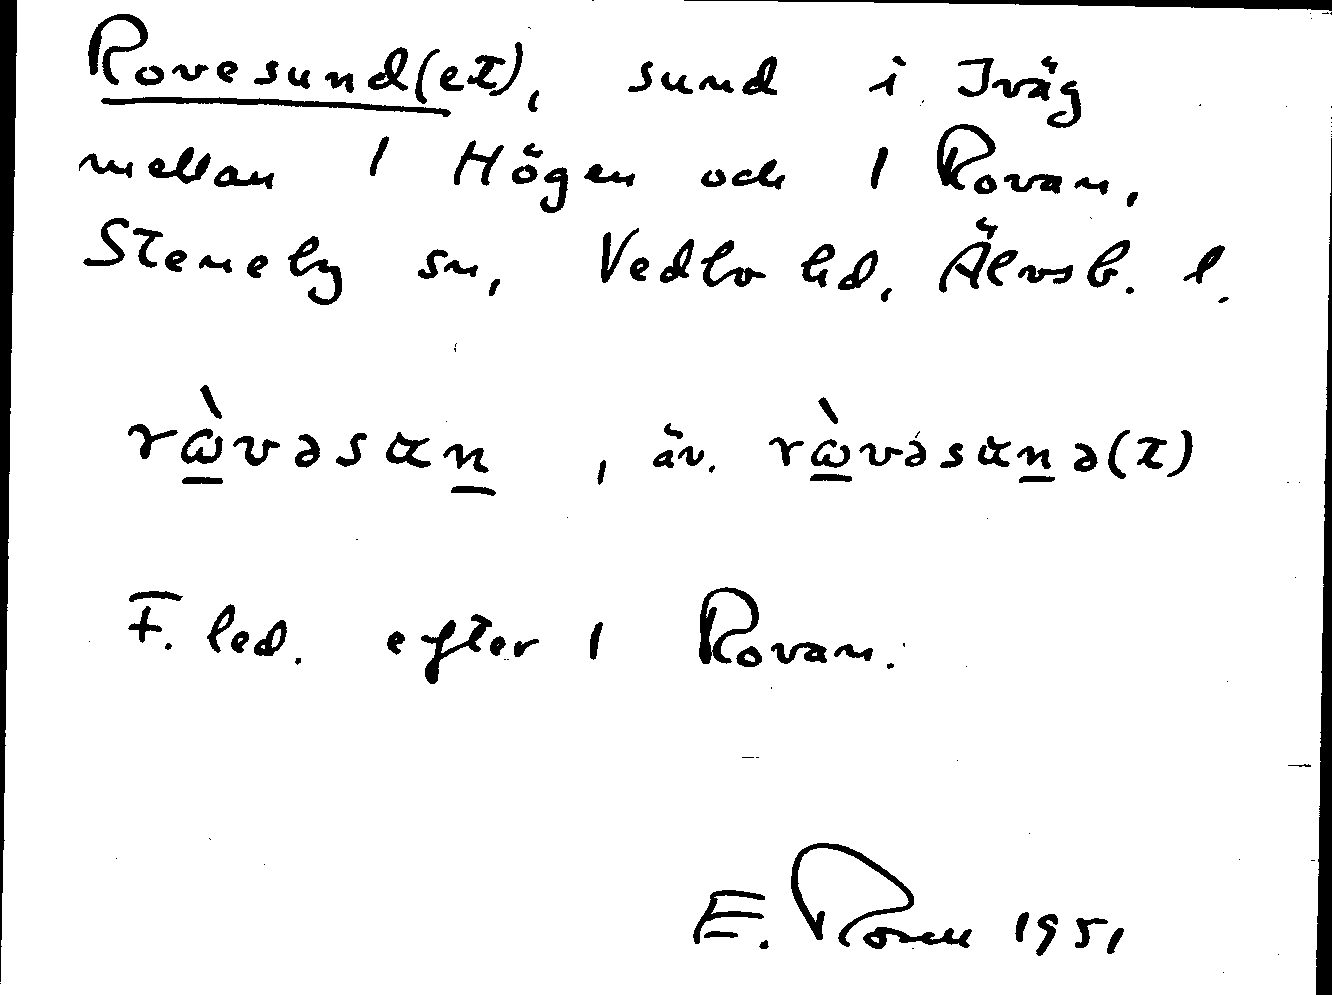 Rovesund(et), sund i Iväg
mellan 1 Högen och 1 Rovan,
Steneby sn, Vedbo hd, Älvsb. l.
rɷ̀vəsan, äv. rɷ̀vəsanə(t)
F. led. efter 1 Rovan.
E. 1951